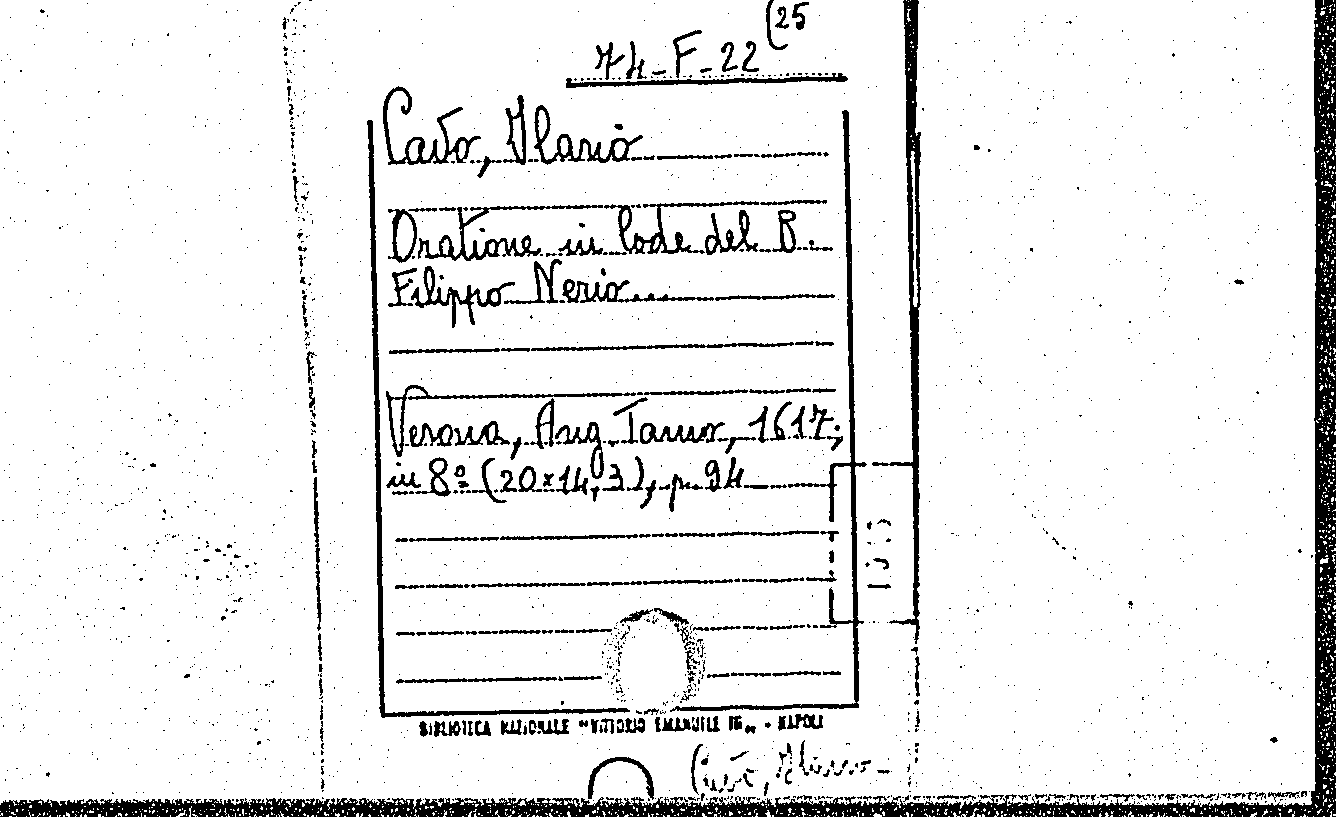 74-F-22 (25
Cavo, Ilario
Oratione in lode del B.
Filippo Nerio...
Verona, Ang. Tamo, 1617;
in 8º (20x14,3), p. 94
BIBLIOTECA NAZIONALE "VITTORIO EMANUELE III" - NAPOLI